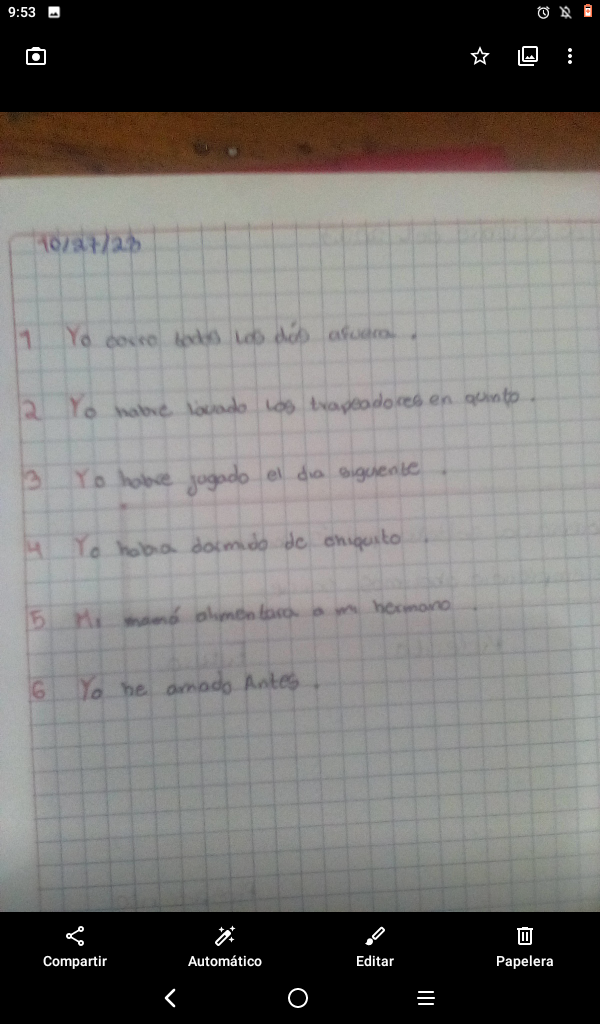 9:53
10/27/23
1 Yo corro todos los dós afuera.
2 Yo habre lavado los trapeadores en quinto.
3 Yo habre jugado el dia siguiente.
4 Yo habia dormido de chiquito.
5 Mi mamá alimentara a mi hermano.
6 Yo he amado Antes.
Compartir
Automático
Editar
Papelera